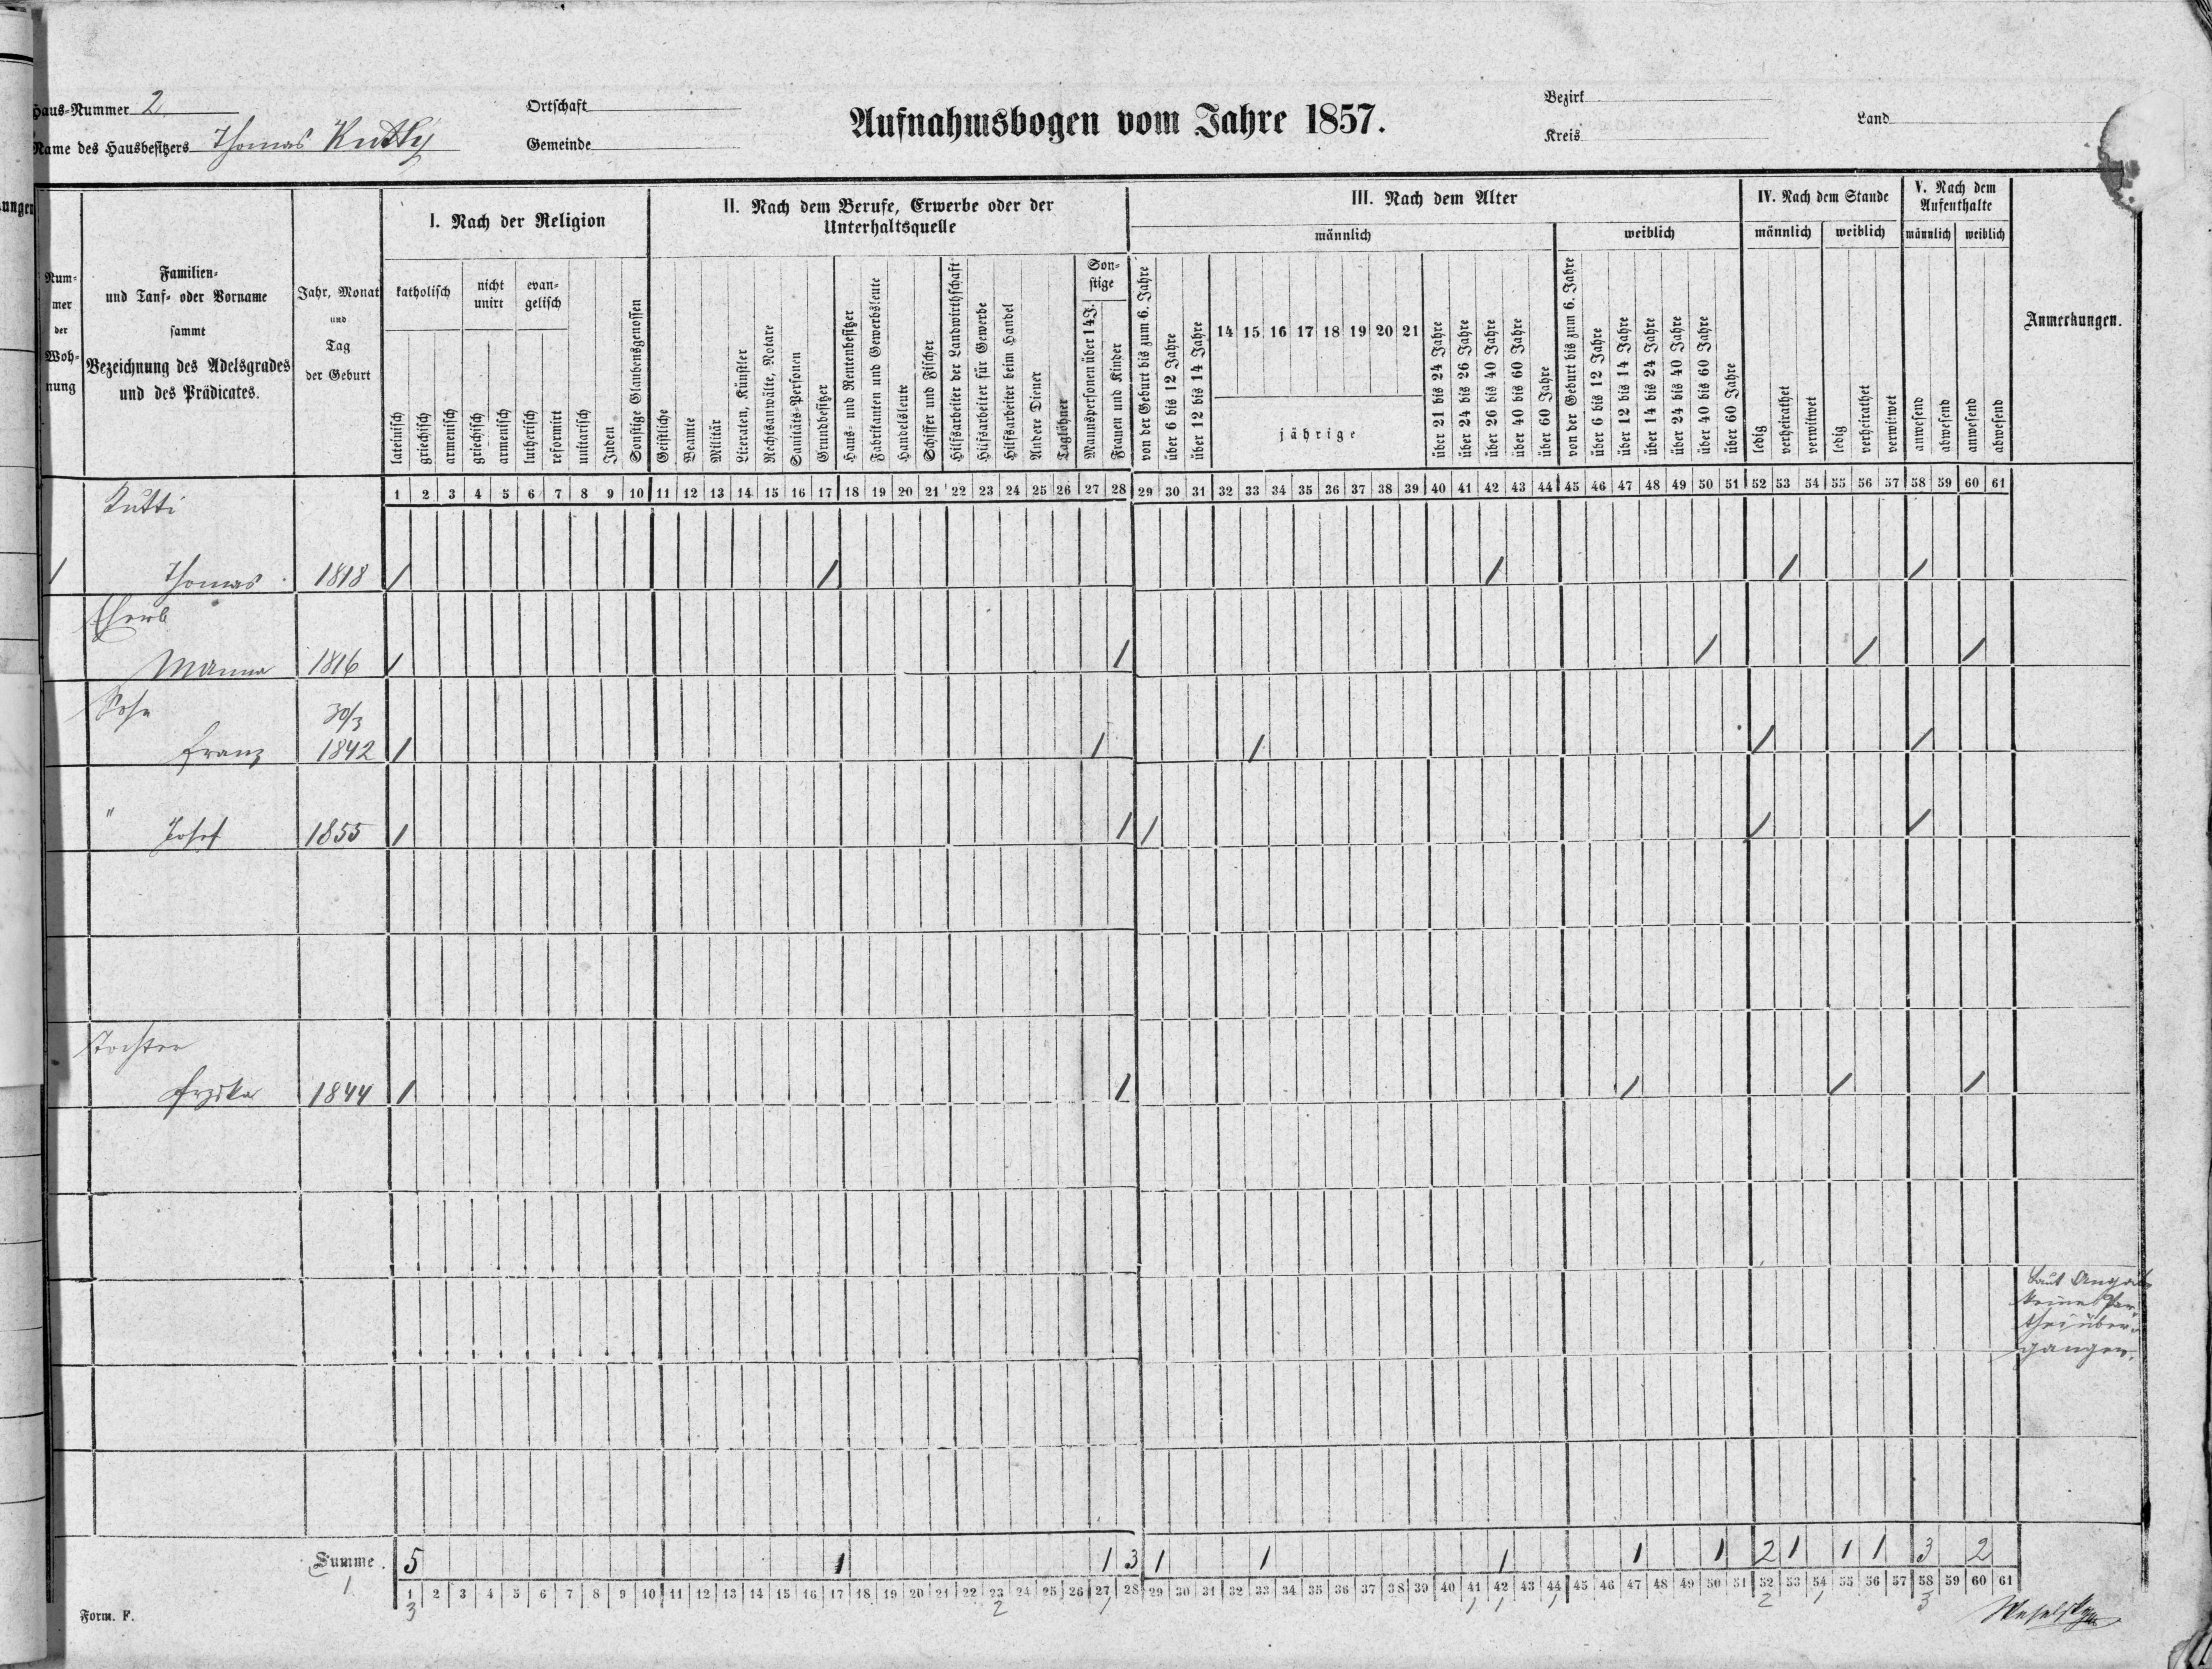 Haus-Nummer 2
Name des Hausbesitzers Thomas Kutty
Ortschaft
Gemeinde
Aufnahmsbogen vom Jahre 1857.
Bezirk
Kreis
Land
Num-
mer
der
Woh-
nung
Familien-
und Tauf- oder Vorname
sammt
Bezeichnung des Adelsgrades
und des Prädicates.
Jahr, Monat
und
Tag
der Geburt
I. Nach der Religion
katholisch
nicht
unirt
evan-
gelisch
lateinisch
griechisch
armenisch
griechisch
armenisch
lutherisch
reformirt
unitarisch
Juden
Sonstige Glaubensgenossen
II. Nach dem Berufe, Erwerbe oder der
Unterhaltsquelle
Geistliche
Beamte
Militär
Literaten, Künstler
Rechtsanwälte, Notare
Sanitäts-Personen
Grundbesitzer
Haus- und Rentenbesitzer
Fabrikanten und Gewerbsleute
Handelsleute
Schiffer und Fischer
Hilfsarbeiter der Landwirthschaft
Hilfsarbeiter für Gewerbe
Hilfsarbeiter beim Handel
Andere Diener
Taglöhner
Son-
stige
Mannspersonen über 14 J.
Frauen und Kinder
III. Nach dem Alter
männlich
von der Geburt bis zum 6. Jahre
über 6 bis 12 Jahre
über 12 bis 14 Jahre
14 15 16 17 18 19 20 21
jährige
über 21 bis 24 Jahre
über 24 bis 26 Jahre
über 26 bis 40 Jahre
über 40 bis 60 Jahre
über 60 Jahre
weiblich
von der Geburt bis zum 6. Jahre
über 6 bis 12 Jahre
über 12 bis 14 Jahre
über 14 bis 24 Jahre
über 24 bis 40 Jahre
über 40 bis 60 Jahre
über 60 Jahre
IV. Nach dem Stande
männlich weiblich
ledig
verheirathet
verwitwet
ledig
verheirathet
verwitwet
V. Nach dem
Aufenthalte
männlich weiblich
anwesend
abwesend
anwesend
abwesend
Anmerkungen.
1 2 3 4 5 6 7 8 9 10 11 12 13 14 15 16 17 18 19 20 21 22 23 24 25 26 27 28 29 30 31 32 33 34 35 36 37 38 39 40 41 42 43 44 45 46 47 48 49 50 51 52 53 54 55 56 57 58 59 60 61
Kutti
1 Thomas 1818 / / / / /
Eheweib
1816 / / / / /
Sohn 30/3
Franz 1842 / / / / /
" Josef 1855 / / / / /
Tochter
1844 / / / / /
Laut Angabe
keine Par-
thei über-
gangen.
Summe 5 1 1 3 1 1 1 1 1 2 1 1 1 3 2
1
1 2 3 4 5 6 7 8 9 10 11 12 13 14 15 16 17 18 19 20 21 22 23 24 25 26 27 28 29 30 31 32 33 34 35 36 37 38 39 40 41 42 43 44 45 46 47 48 49 50 51 52 53 54 55 56 57 58 59 60 61
3 2 1 1 1 1 2 1 3
Form. F.